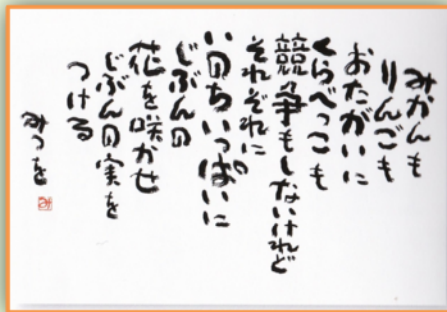 みかんも
りんごも
おたがいに
くらべっこも
競争もしないけれど
それぞれに
いのちいっぱいに
じぶんの
花を咲かせ
じぶんの実を
つける
みつを
み